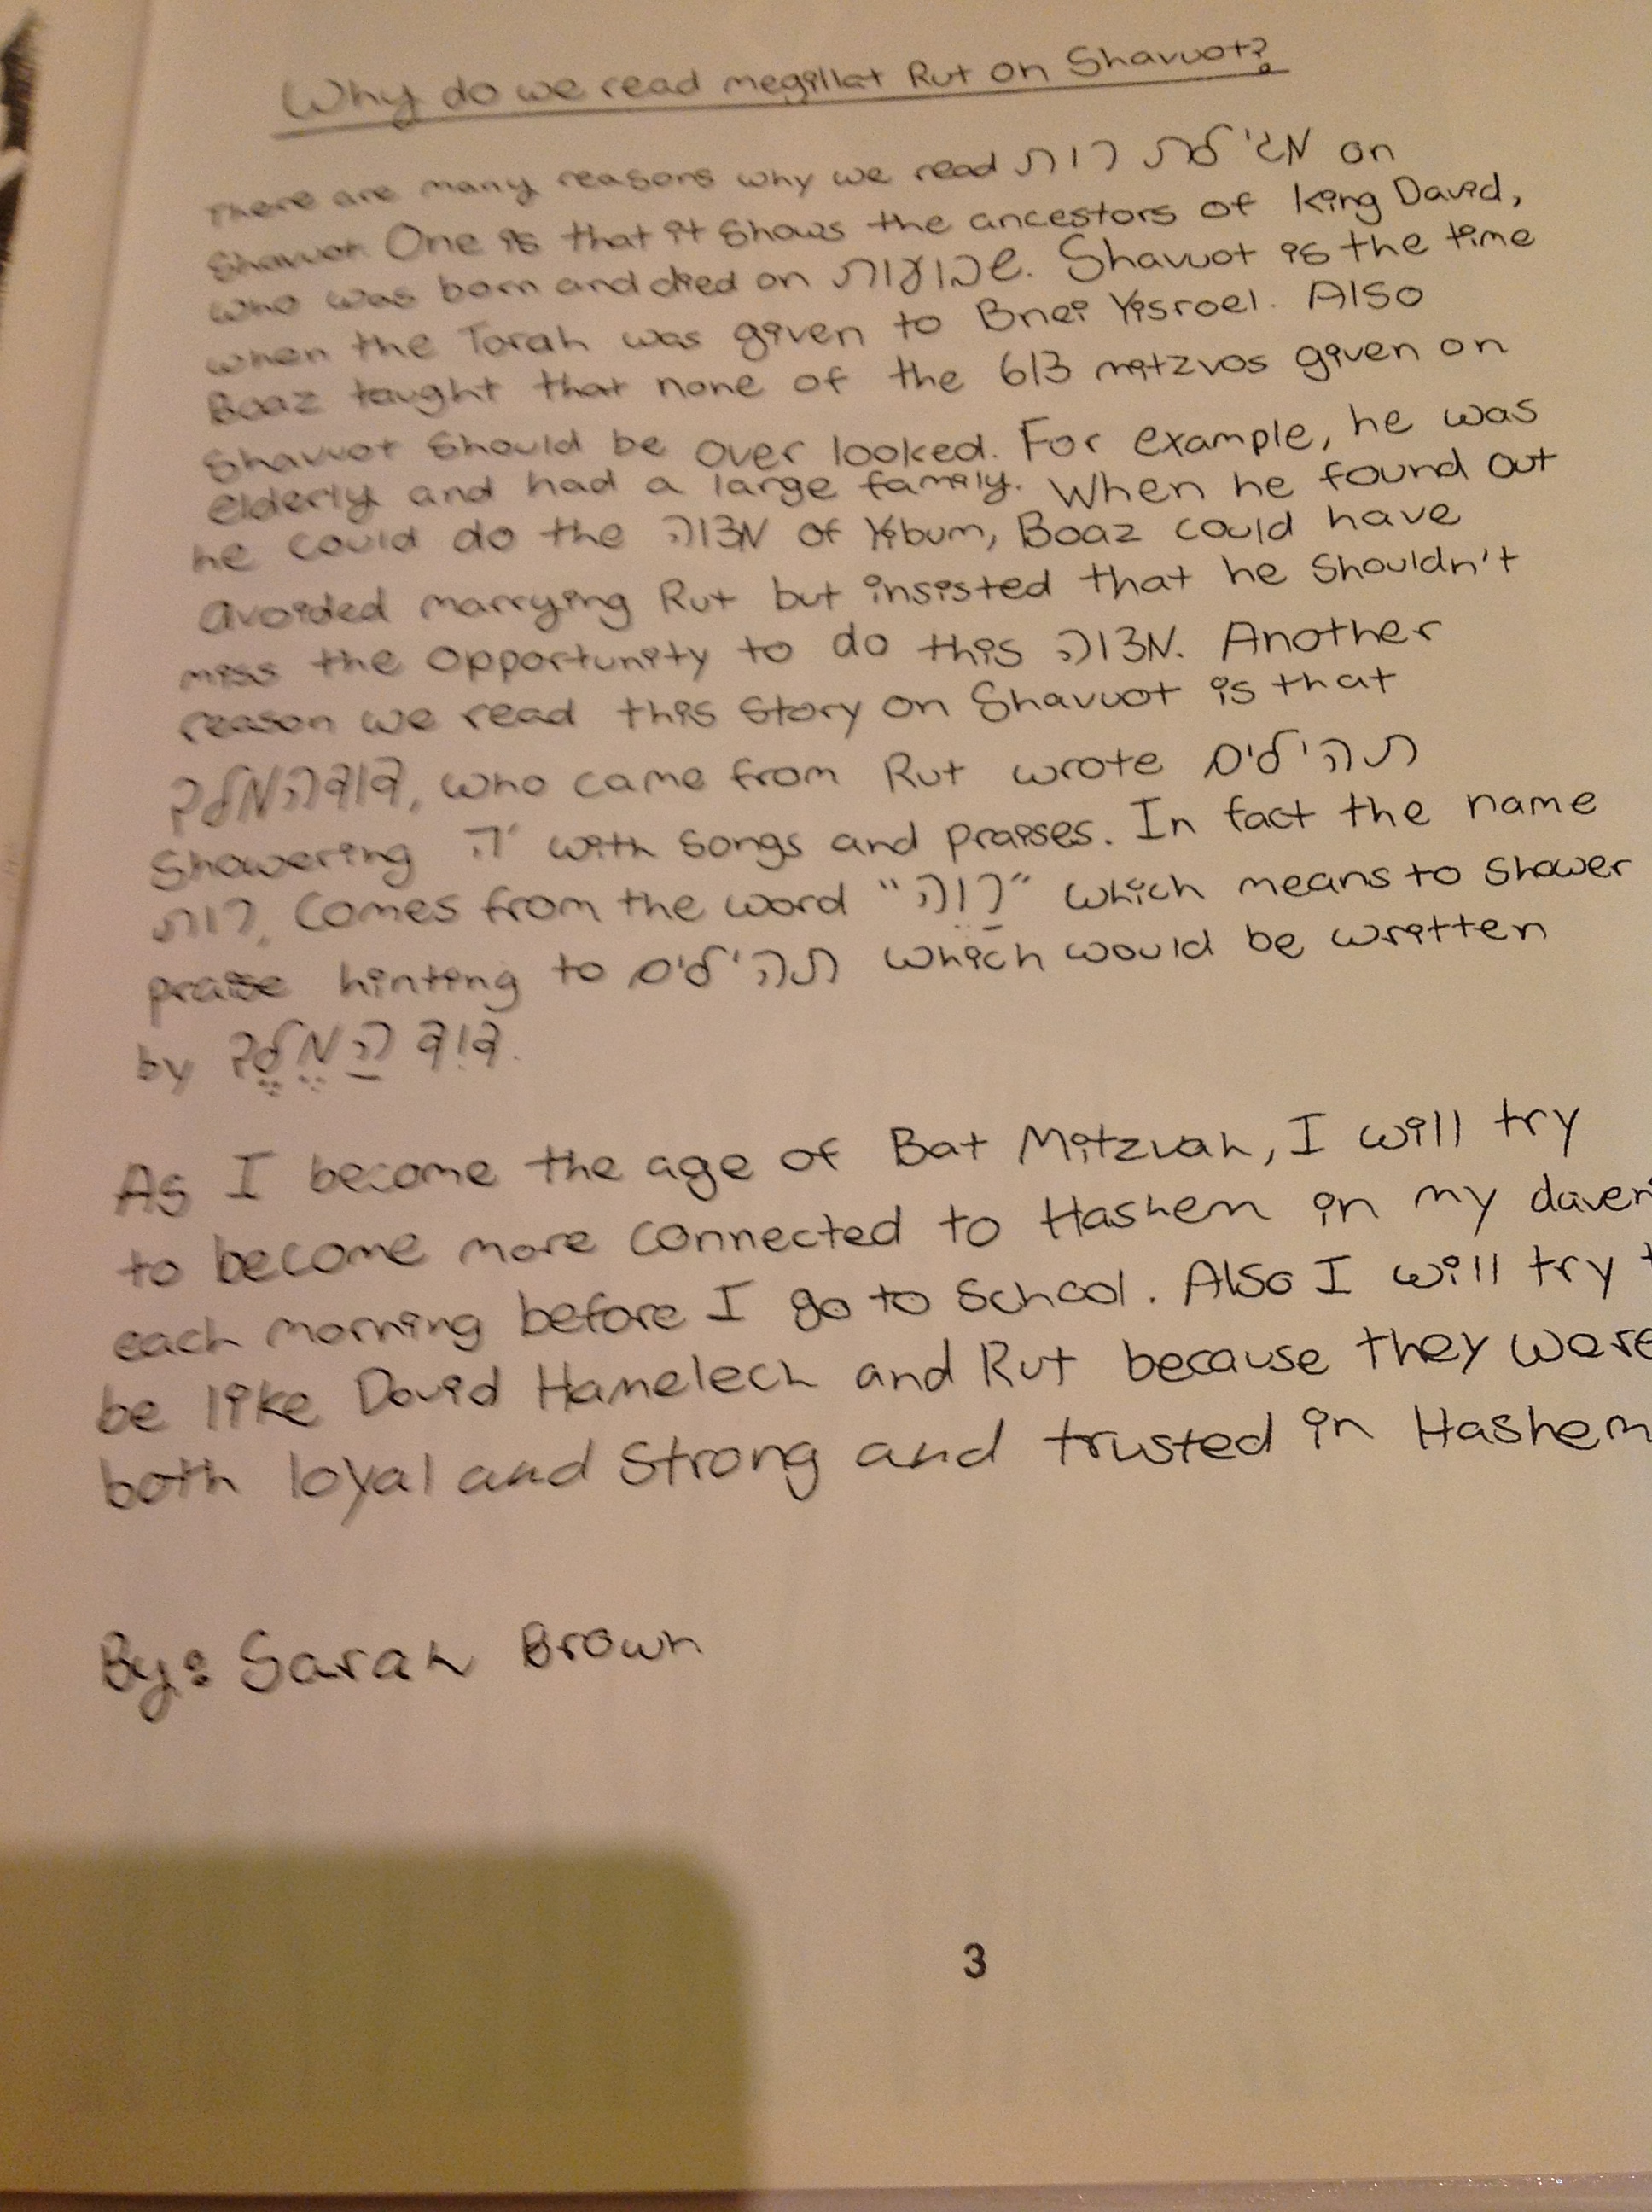 Why do we read megillat Rut on Shavuot?
There are many reasons why we read מגילת רות on
Shavuot. One is that it shows the ancestors of king David,
who was born and died on שבועות. Shavuot is the time
when the Torah was given to Bnei Yisroel. Also
Boaz taught that none of the 613 mitzvos given on
Shavuot should be over looked. For example, he was
elderly and had a large family. When he found out
he could do the מצוה of Yibum, Boaz could have
avoided marrying Rut but insisted that he shouldn't
miss the opportunity to do this מצוה. Another
reason we read this story on Shavuot is that
דודהמלך, who came from Rut wrote תהילים
showering ה' with songs and praises. In fact the name
רות, comes from the word "רַוֵה" which means to shower
praise hinting to תהילים which would be written
by דוִד הַמֶלֶך.
As I become the age of Bat Mitzvah, I will try
to become more connected to Hashem in my daveni
each morning before I go to school. Also I will try t
be like David Hamelech and Rut because they were
both loyal and strong and trusted in Hashem
By: Sarah Brown
3